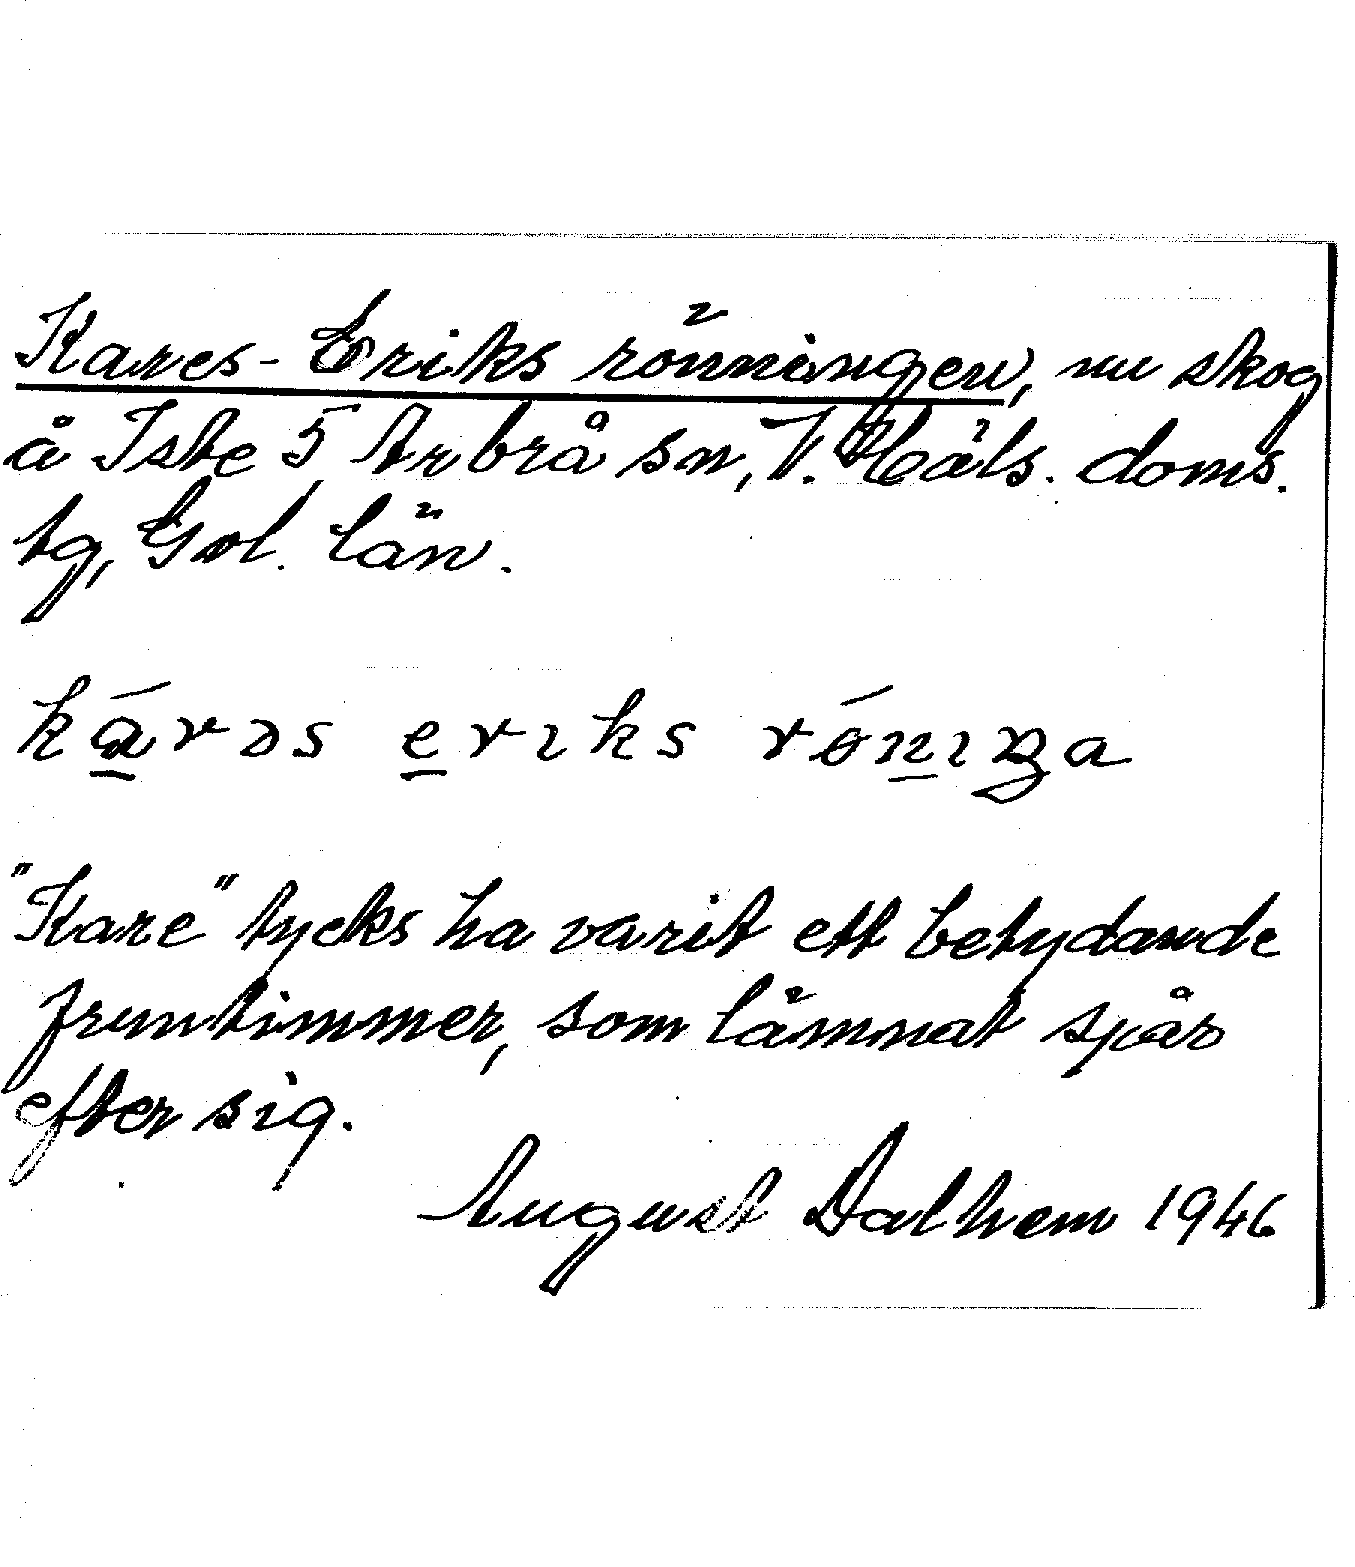 Kares-Eriks rönningen, nu skog
å Iste 5, Arbrå sn, V. Häls. doms.
tg, Gvl. län.
kárəs eriks rǿnıŋa
"Kare" tycks ha varit ett betydande
fruntimmer, som lämnat spår
efter sig.
August Dalhem 1946